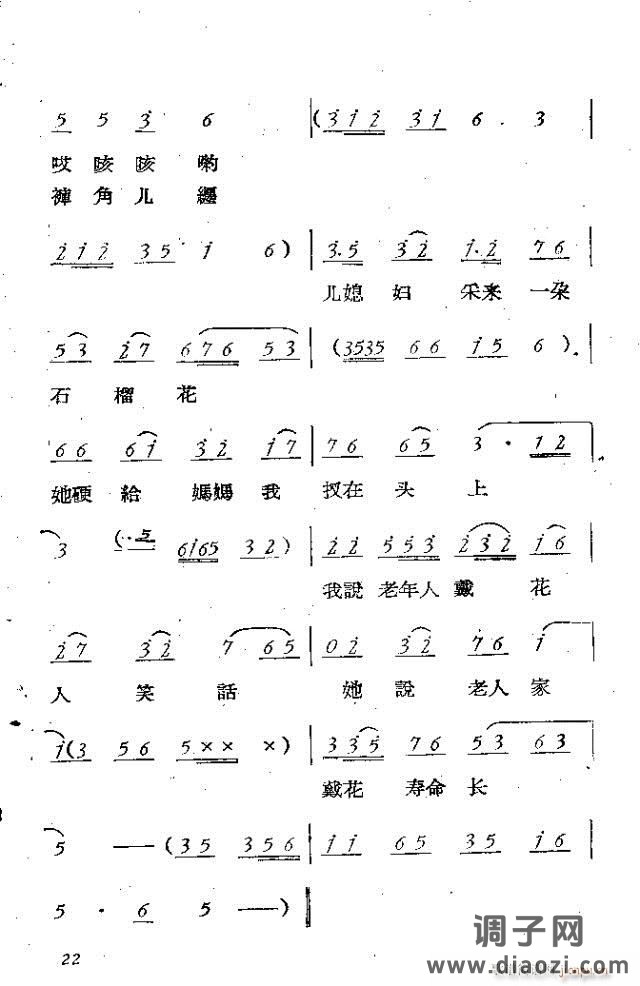 5 5 3 6 | (3 1 2 3 1 6 . 3 |
哎咳咳喲
褲角儿纏
2 1 2 3 5 1 6) | 3.5 3 2 1.2 7 6 |
儿媳妇 采来一朶
5 3 2 7 6 7 6 5 3 | (3 5 3 5 6 6 1 5 6) |
石榴花
6 6 6 1 3 2 1 7 | 7 6 6 5 3 . 1 2 |
她硬給 媽媽我 扠在头上
3 (. 5 6 1 6 5 3 2) | 2 2 5 5 3 2 3 2 1 6 |
我說老年人戴 花
2 7 3 2 7 6 5 | 0 2 3 2 7 6 1 |
人 笑 話 她 說 老人家
1 (3 5 6 5 × × ×) | 3 3 5 7 6 5 3 6 3 |
戴花 寿命长
5 —— (3 5 3 5 6 | 1 1 6 5 3 5 1 6 |
5 . 6 5 ——) ‖
22
调子网
www.diaozi.com